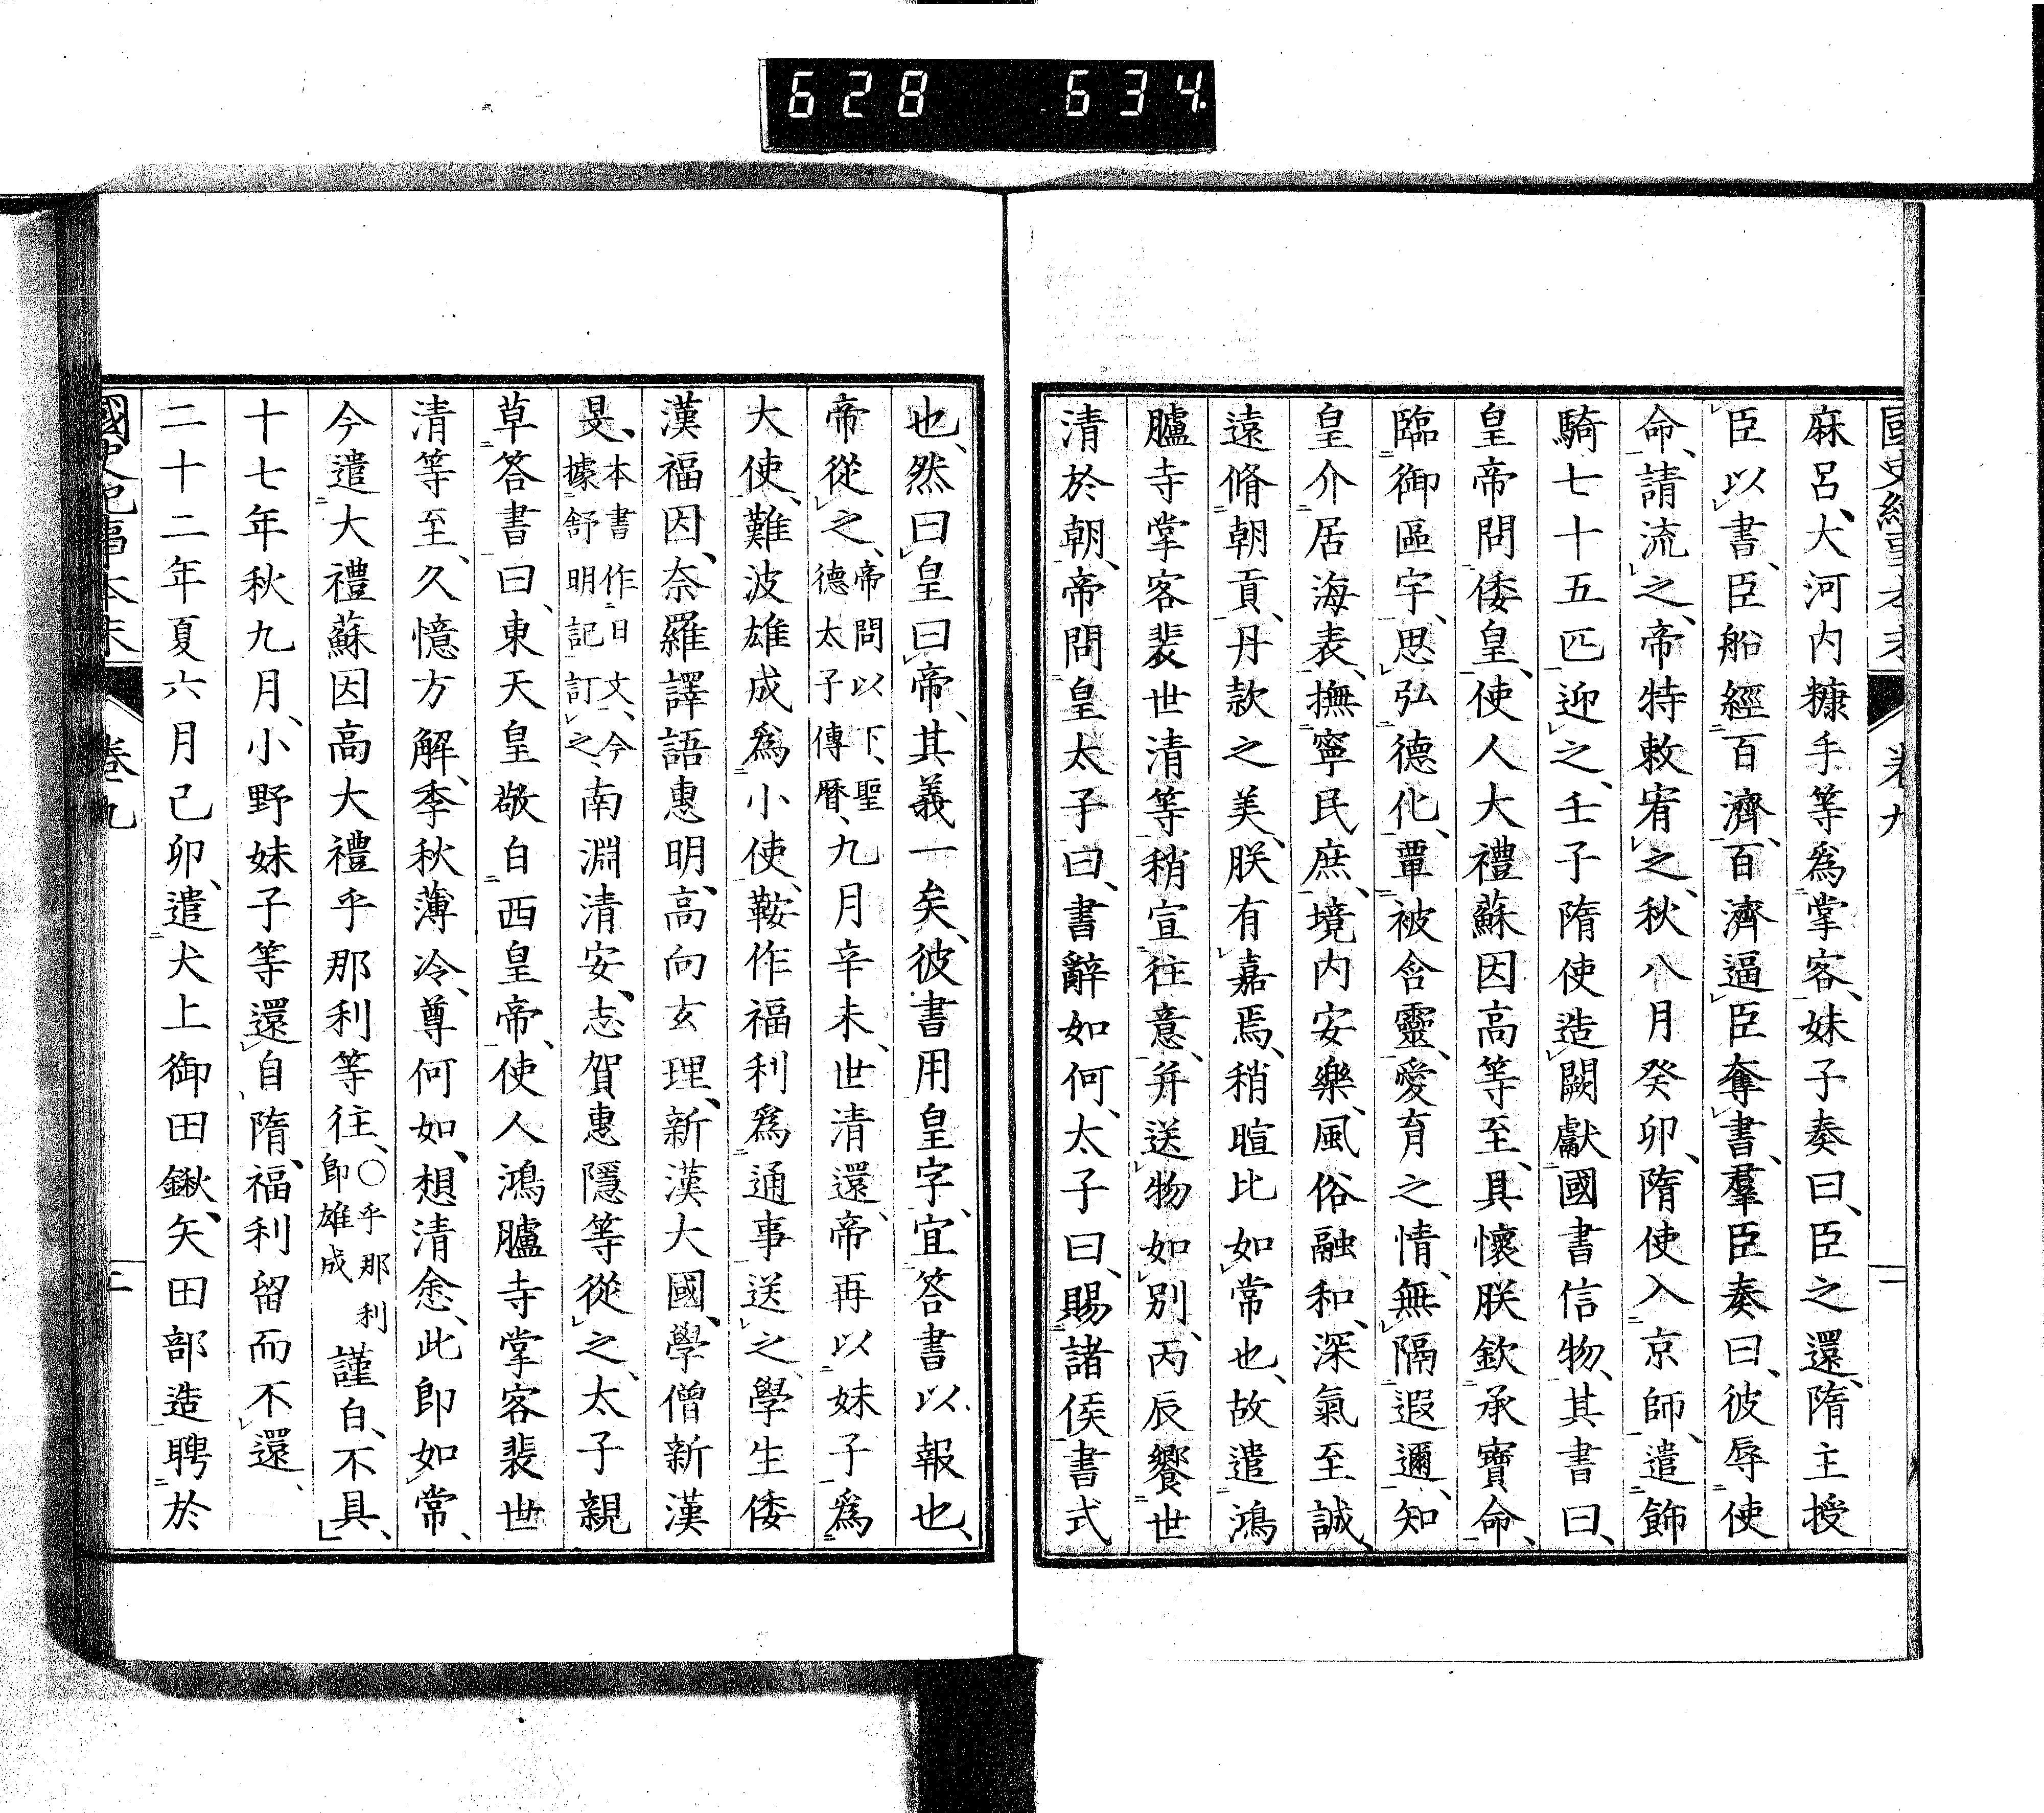 628 634.
國史紀事本末 卷九 二
麻呂、大河內糠手等爲掌客、妹子奏曰、臣之還、隋主授
臣以書、臣船經百濟、百濟逼臣奪書、羣臣奏曰、彼辱使
命、請流之、帝特敕宥之、秋八月癸卯、隋使入京師、遣飾
騎七十五匹迎之、壬子隋使造闕獻國書信物、其書曰、
皇帝問倭皇、使人大禮蘇因高等至、具懷朕欽承寶命、
臨御區宇、思弘德化、覃被含靈、愛育之情、無隔遐邇、知
皇介居海表、撫寧民庶、境內安樂、風俗融和、深氣至誠、
遠脩朝貢、丹款之美、朕有嘉焉、稍暄比如常也、故遣鴻
臚寺掌客裴世清等、稍宣往意、幷送物如別、丙辰饗世
清於朝、帝問皇太子曰、書辭如何、太子曰、賜諸侯書式
也、然曰皇曰帝、其義一矣、彼書用皇字、宜答書以報也、
帝從之、帝問以下、聖德太子傳曆、九月辛未、世清還、帝再以妹子爲
大使、難波雄成爲小使、鞍作福利爲通事、送之、學生倭
漢福因、奈羅譯語惠明、高向玄理、新漢大國、學僧新漢
旻、本書作日文、今據舒明記訂之、南淵清安、志賀惠隱等從之、太子親
草答書曰、東天皇敬白西皇帝、使人鴻臚寺掌客裴世
清等至、久憶方解、季秋薄冷、尊何如、想清悆、此卽如常、
今遣大禮蘇因高大禮乎那利等往、〇乎那利卽雄成謹白、不具、」
十七年秋九月、小野妹子等還自隋、福利留而不還、
二十二年夏六月己卯、遣犬上御田鍬、矢田部造聘於
國史紀事本末 卷九 三